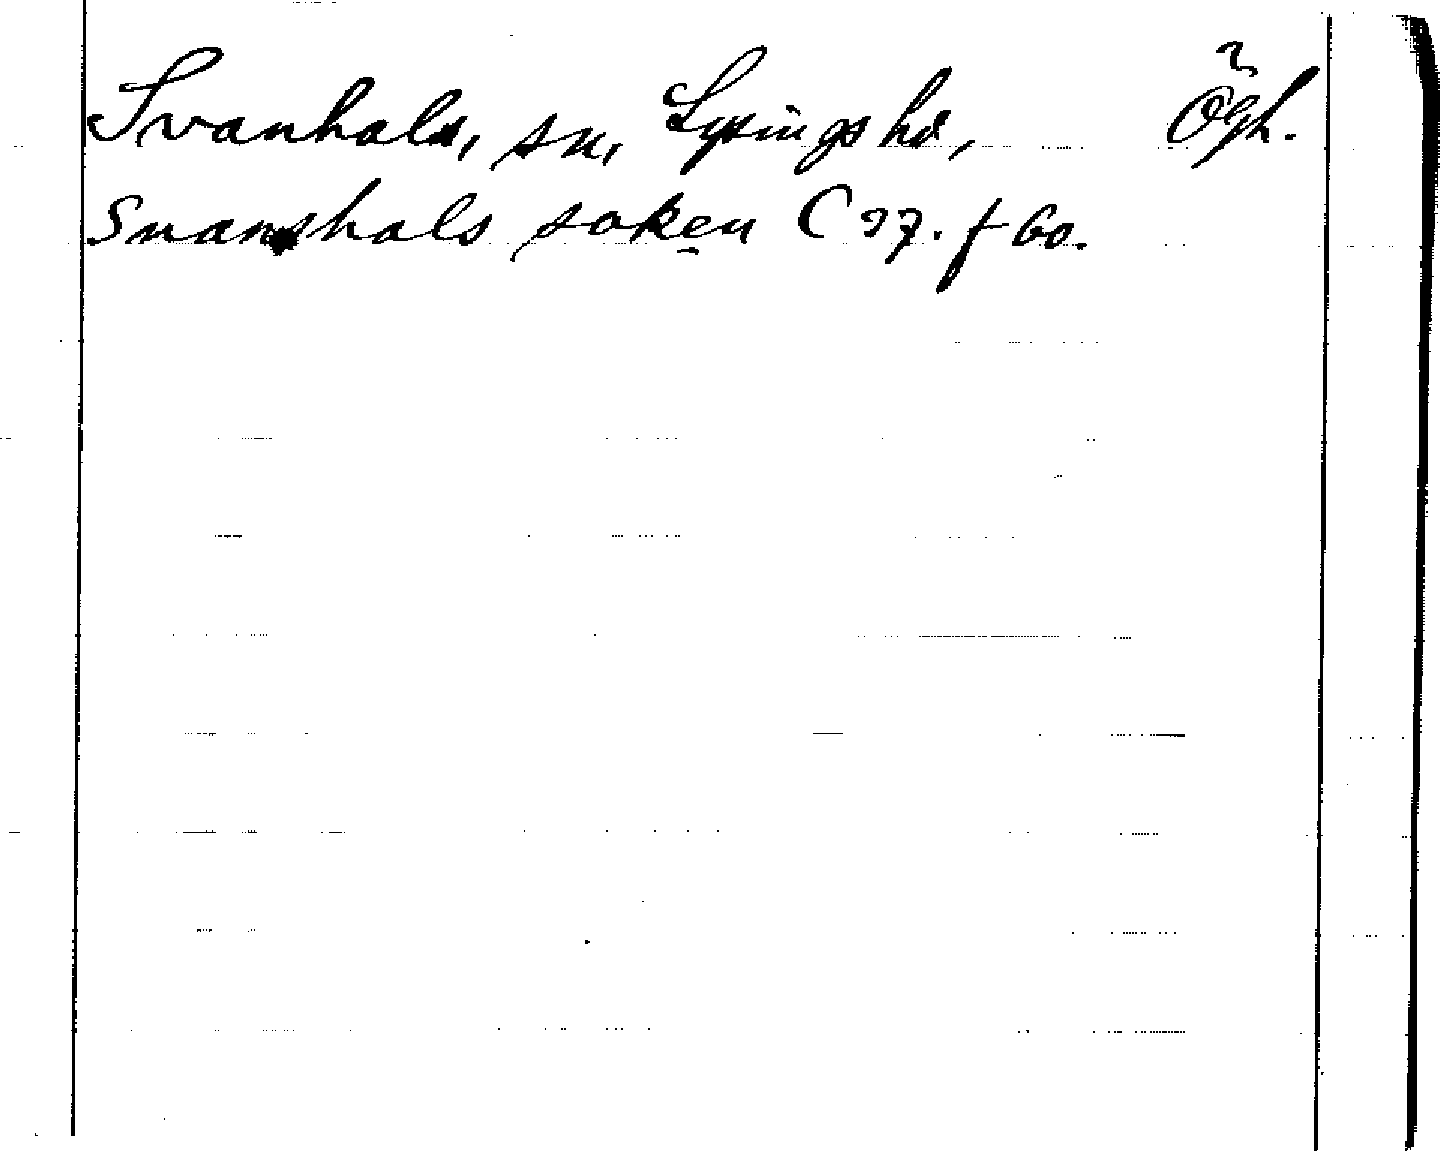 Svanhals, sn, Lysings hd, Ögh.
Suanshals soken C 37. f 60.